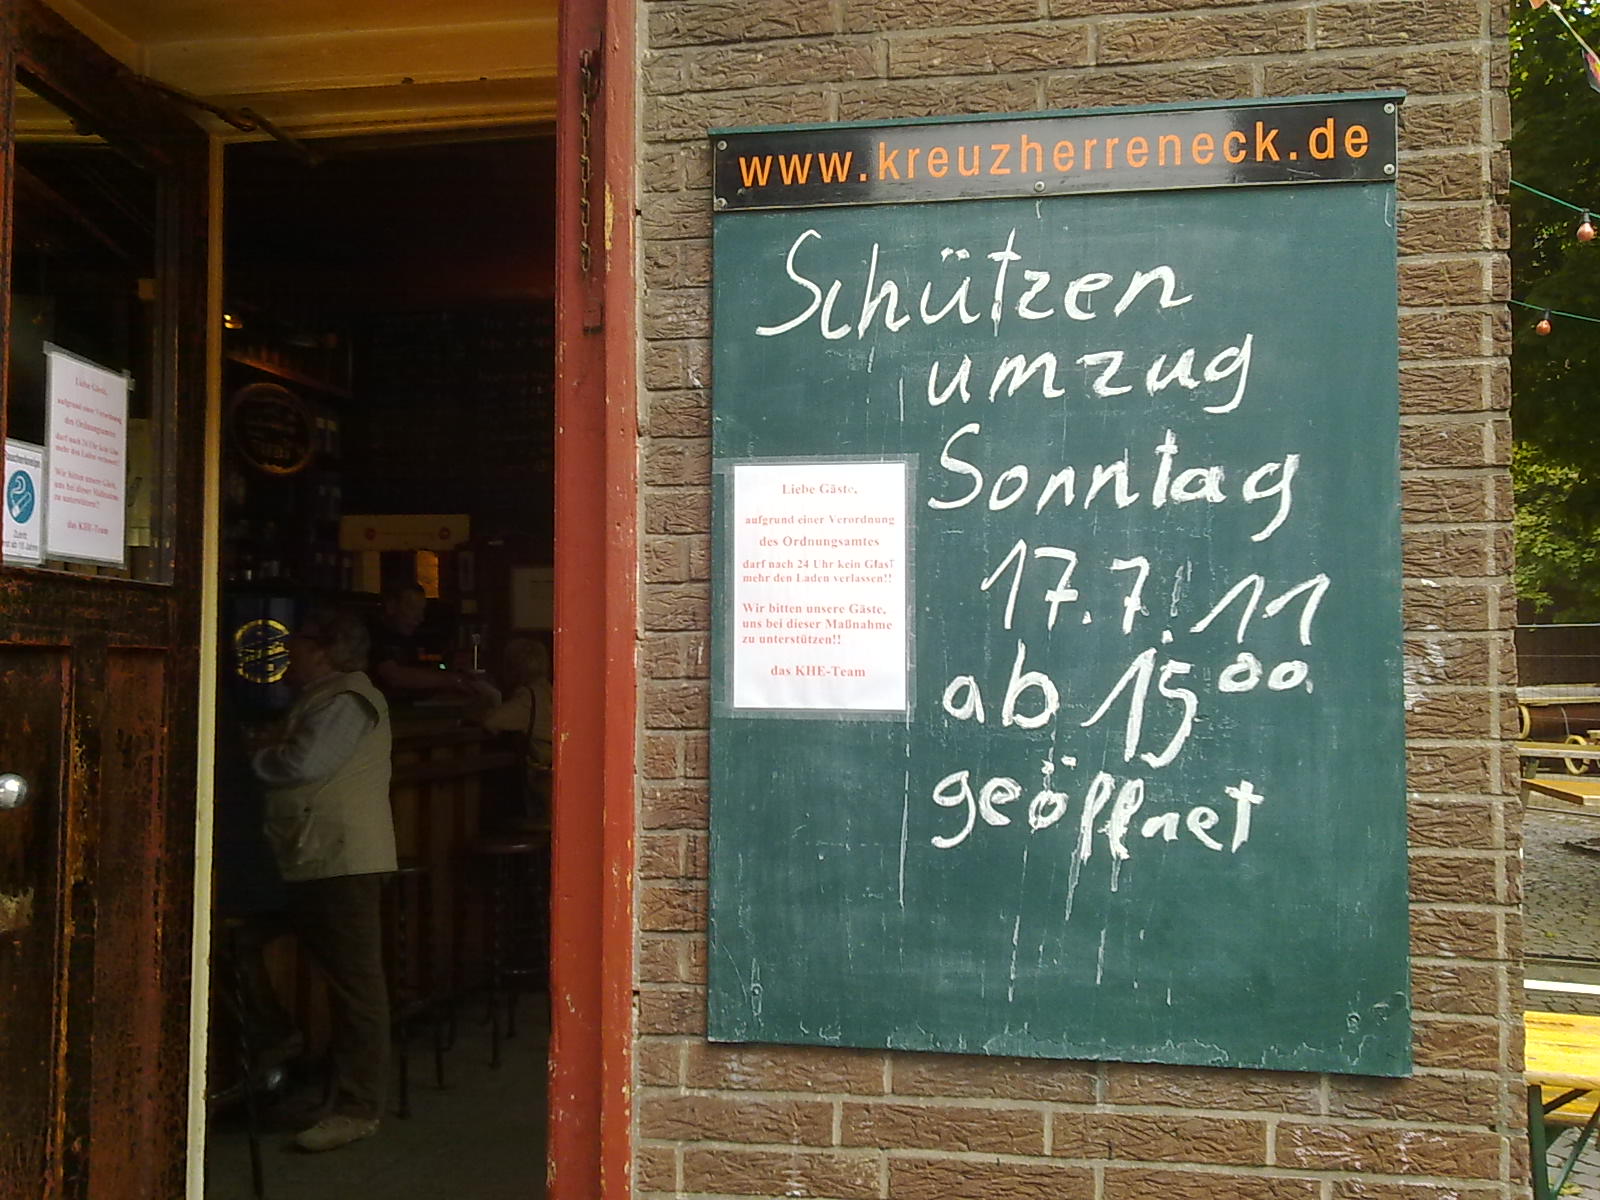 www.kreuzherreneck.de
Schützen
umzug
Sonntag
17.7.11
ab 15⁰⁰
geöffnet
Liebe Gäste,
aufgrund einer Verordnung
des Ordnungsamtes
darf nach 24 Uhr kein Glas
mehr den Laden verlassen!!
Wir bitten unsere Gäste,
uns bei dieser Maßnahme
zu unterstützen!!
das KHE-Team
Liebe Gäste,
aufgrund einer Verordnung
des Ordnungsamtes
darf nach 24 Uhr kein Glas
mehr den Laden verlassen!!
Wir bitten unsere Gäste,
uns bei dieser Maßnahme
zu unterstützen!!
das KHE-Team
Zutritt
erst ab 18 Jahren